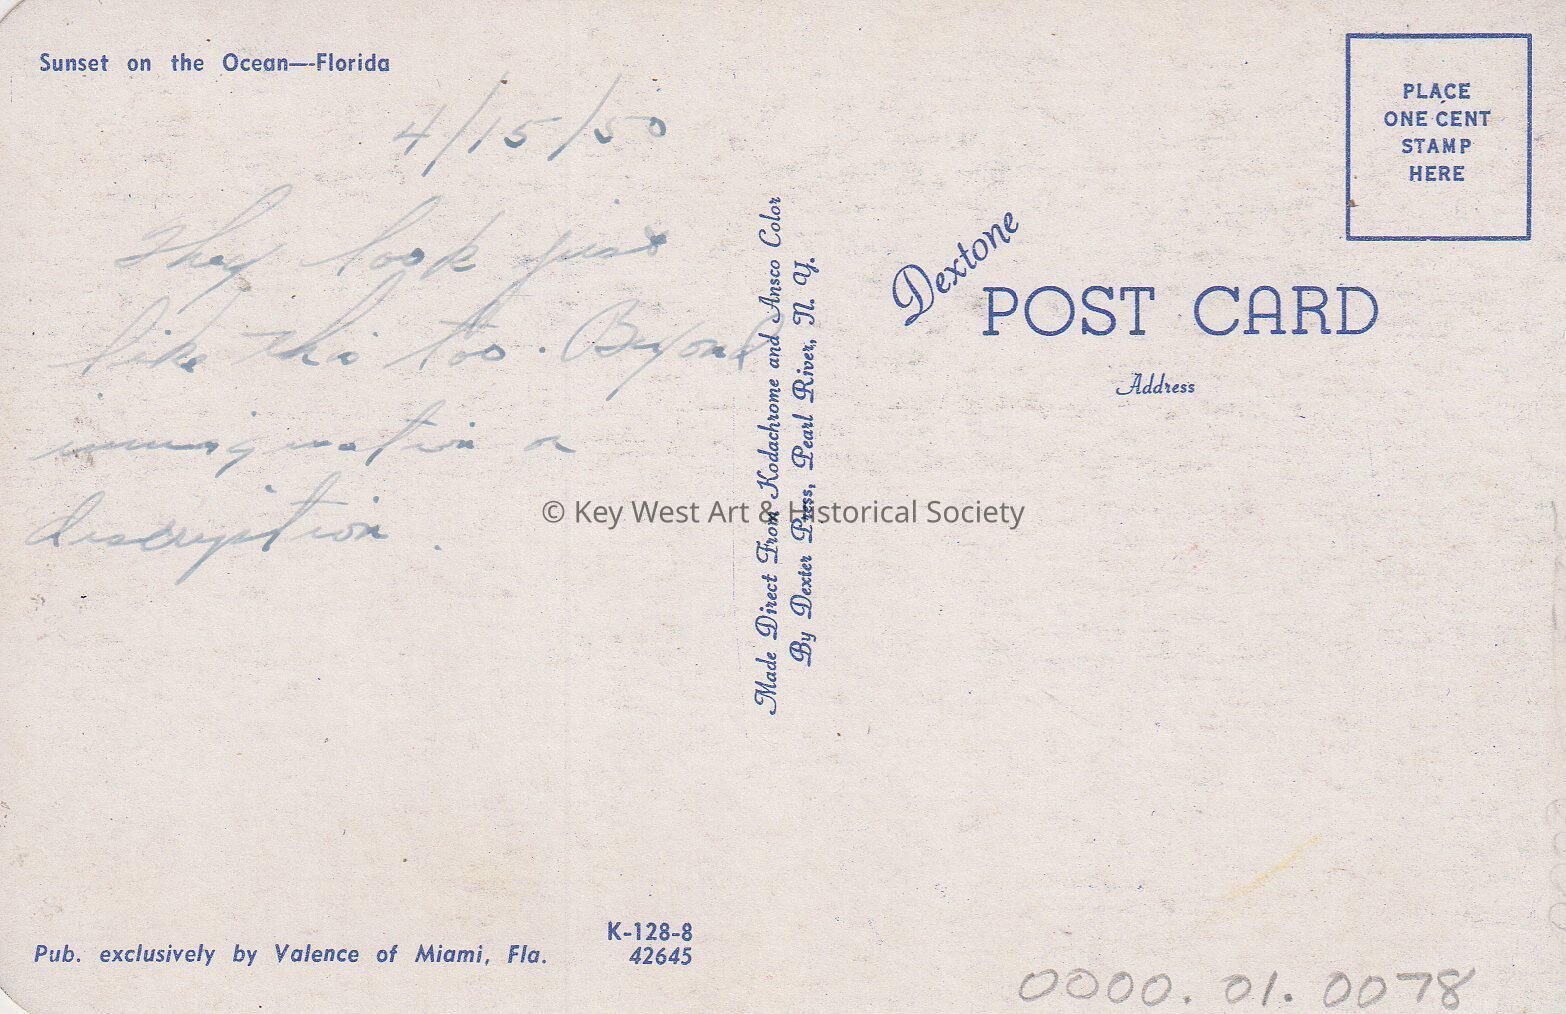 Sunset on the Ocean—Florida
4/15/50
They look just
like this too. Beyond
immagination or
description.
Pub. exclusively by Valence of Miami, Fla.
K-128-8
42645
Made Direct From Kodachrome and Ansco Color
By Dexter Press, Pearl River, N. Y.
© Key West Art & Historical Society
PLACE
ONE CENT
STAMP
HERE
Dextone
POST CARD
Address
0000.01.0078